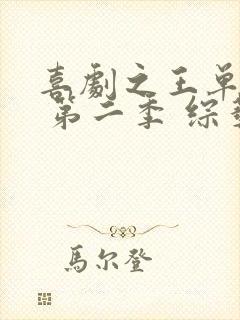 喜劇之王單
第二季 綜
馬尔登